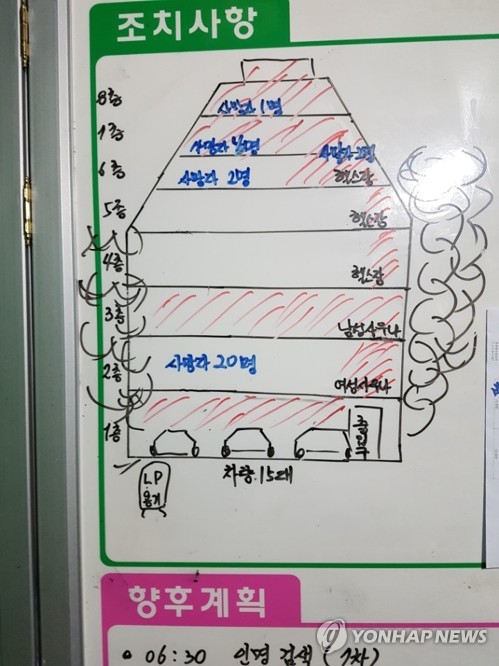 조치사항
8층
사망자 1명
7층
사망자 4명
사망자 2명
6층
사망자 2명
헬스장
5층
헬스장
4층
헬스장
3층
남성사우나
2층
사망자 20명
여성사우나
1층
출입구
LP
용기
차량 15대
향후계획
연합뉴스
YONHAP NEWS
• 06:30 인명 검색 (1차)